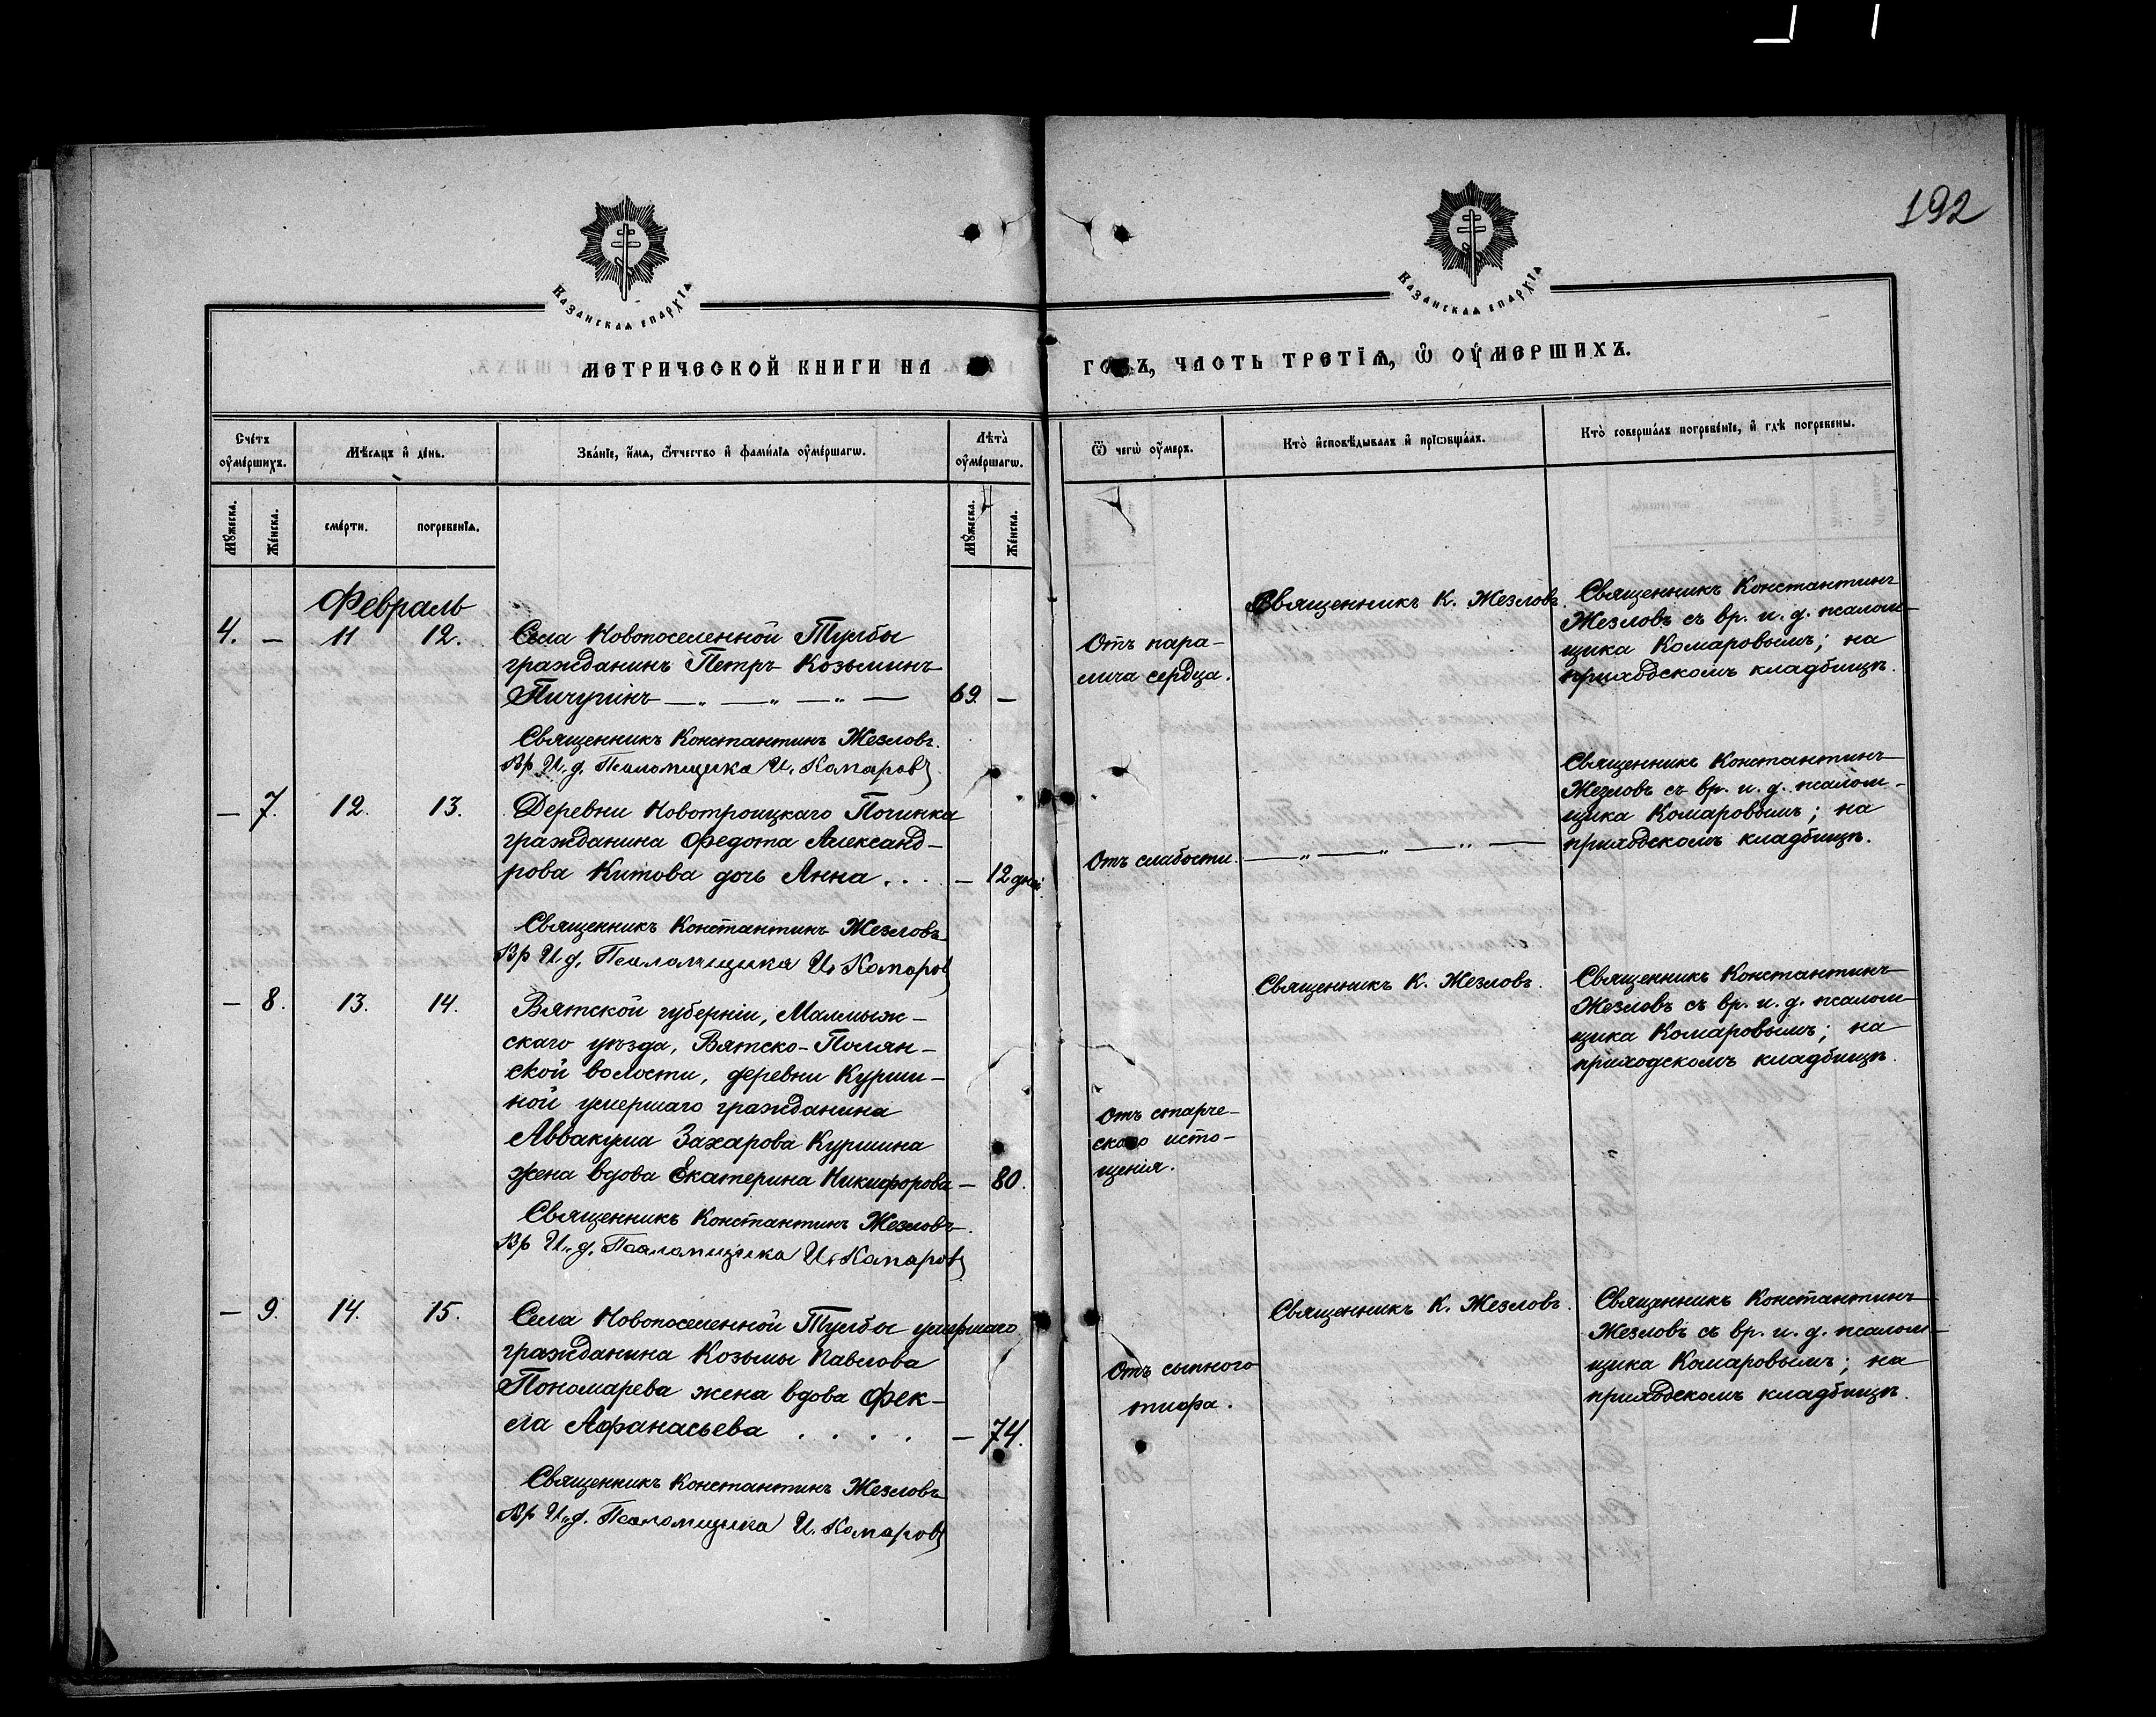 192
Казанская епархїѧ
Казанская епархїѧ
МЕТРИЧЕСКОЙ КНИГИ НА
ГОДЪ, ЧАСТЬ ТРЕТЇѦ, Ѡ ОУМЕРШИХЪ.
Счетъ оумершихъ.
Мѣсяцъ и день.
Званїе, имя, отчество и фамилїя оумершагѡ.
Лѣта оумершагѡ.
Ѿ чегѡ оумеръ.
Кто исповѣдывалъ и прїѡбщалъ.
Кто совершалъ погребенїе, и гдѣ погребены.
Мужеска.
Женска.
смерти.
погребенїя.
Мужеска.
Женска.
Февраль
4. — 11 12.
Села Новопоселенной Тумбы
гражданинъ Петръ Козьминъ
Пичугинъ — „ — „ — „ — 69. —
Священникъ Константинъ Жезловъ.
Вр И. д. Псаломщика И. Комаровъ
Отъ пара-
лича сердца.
Священникъ К. Жезловъ.
Священникъ Константинъ
Жезловъ съ вр. и. д. псалом-
щика Комаровымъ; на
приходскомъ кладбищѣ.
— 7. 12. 13.
Деревни Новотроицкаго Починка
гражданина Федота Александ-
рова Китова дочь Анна . . — 12 дней
Священникъ Константинъ Жезловъ
Вр И. д. Псаломщика И. Комаровъ
Отъ слабости.
— „ — „ — „ —
Священникъ Константинъ
Жезловъ съ вр. и. д. псалом-
щика Комаровымъ; на
приходскомъ кладбищѣ.
— 8. 13. 14.
Вятской губерніи, Малмыж-
скаго уѣзда, Вятско-Полян-
ской волости, деревни Курши-
ной умершаго гражданина
Аввакума Захарова Куршина
жена вдова Екатерина Никифорова — 80.
Священникъ Константинъ Жезловъ.
Вр И. д. Псаломщика И. Комаровъ
Отъ старче-
скаго исто-
щенія.
Священникъ К. Жезловъ.
Священникъ Константинъ
Жезловъ съ вр. и. д. псалом-
щика Комаровымъ; на
приходскомъ кладбищѣ.
— 9. 14. 15.
Села Новопоселенной Тумбы умершаго
гражданина Козьмы Павлова
Пономарева жена вдова Фек-
ла Афанасьева . . . . — 74.
Священникъ Константинъ Жезловъ
Вр И. д. Псаломщика И. Комаровъ
Отъ сыпного
тифа.
Священникъ К. Жезловъ.
Священникъ Константинъ
Жезловъ съ вр. и. д. псалом-
щика Комаровымъ; на
приходскомъ кладбищѣ.